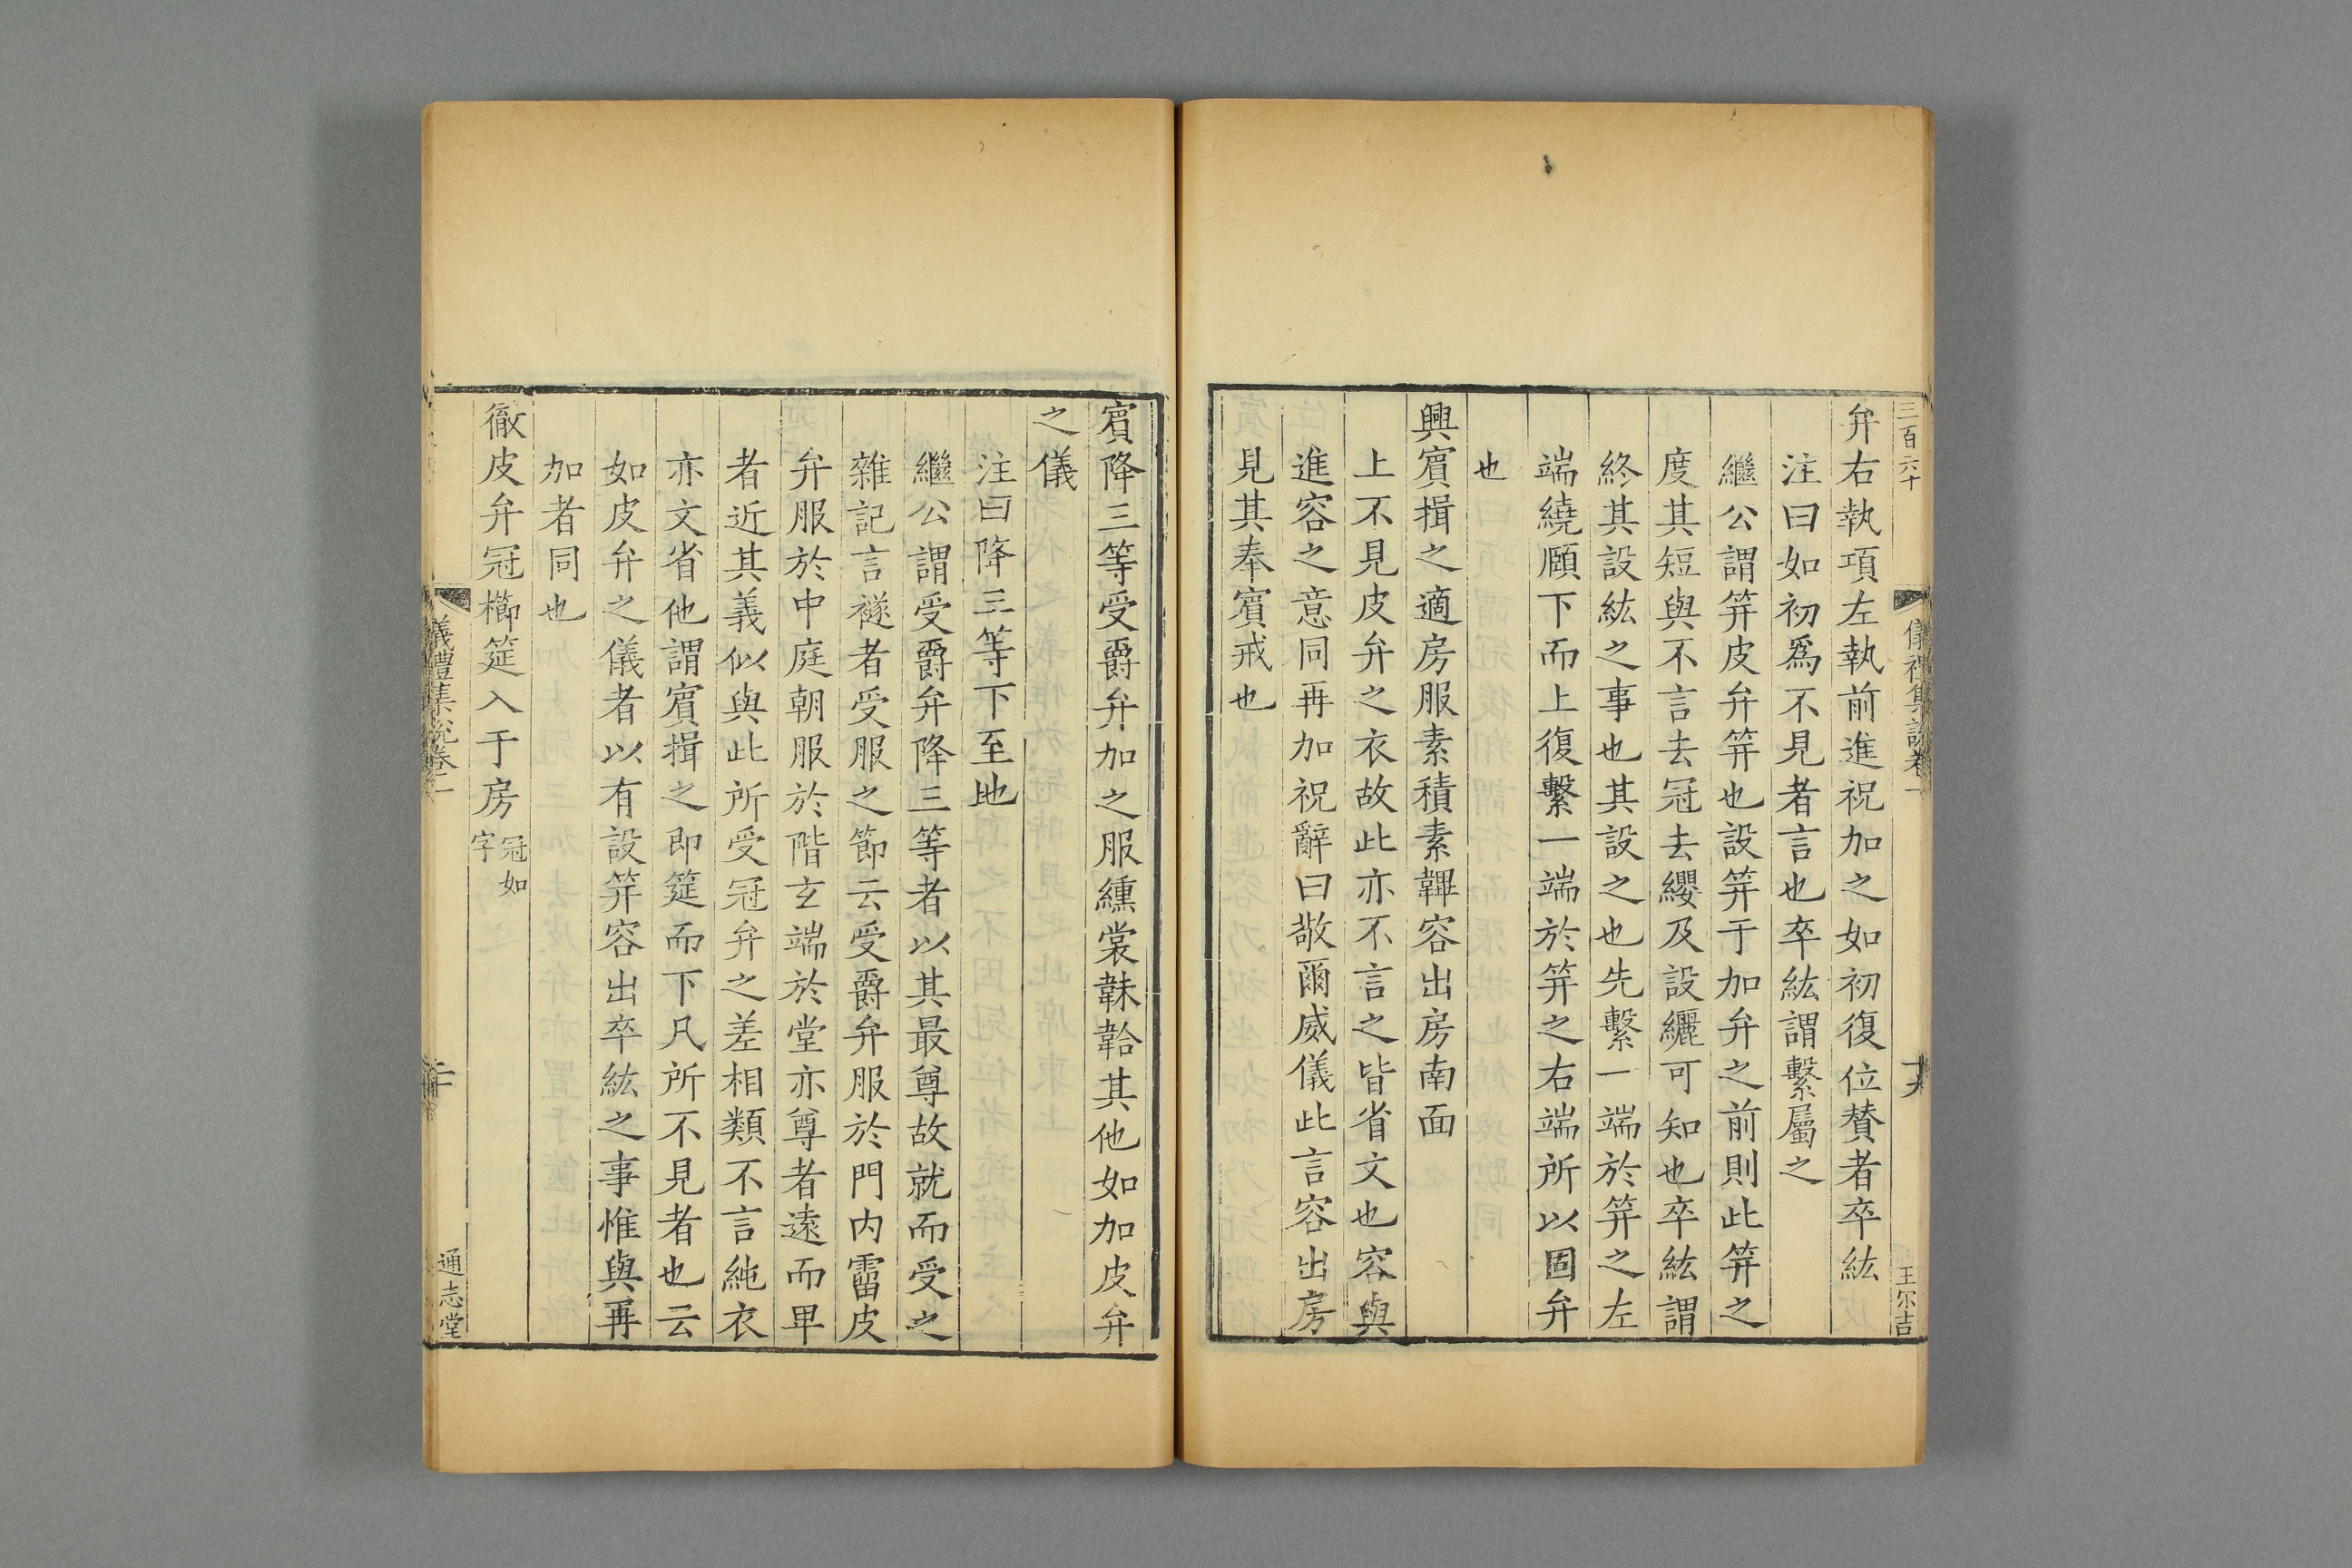 三百六十
儀禮集說卷一
十九
王尔吉
弁右執項左執前進祝加之如初復位贊者卒紘
注曰如初爲不見者言也卒紘謂繫屬之
繼公謂笄皮弁笄也設笄于加弁之前則此笄之
度其短與不言去冠去纓及設纚可知也卒紘謂
終其設紘之事也其設之也先繫一端於笄之左
端繞頤下而上復繫一端於笄之右端所以固弁
也
興賓揖之適房服素積素韠容出房南面
上不見皮弁之衣故此亦不言之皆省文也容與
進容之意同再加祝辭曰敬爾威儀此言容出房
見其奉賓戒也
賓降三等受爵弁加之服纁裳韎韐其他如加皮弁
之儀
注曰降三等下至地
繼公謂受爵弁降三等者以其最尊故就而受之
雜記言襚者受服之節云受爵弁服於門内霤皮
弁服於中庭朝服於階玄端於堂亦尊者遠而卑
者近其義似與此所受冠弁之差相類不言純衣
亦文省他謂賓揖之即筵而下凡所不見者也云
如皮弁之儀者以有設笄容出卒紘之事惟與再
加者同也
徹皮弁冠櫛筵入于房冠如
字
儀禮集說卷一
二十
通志堂